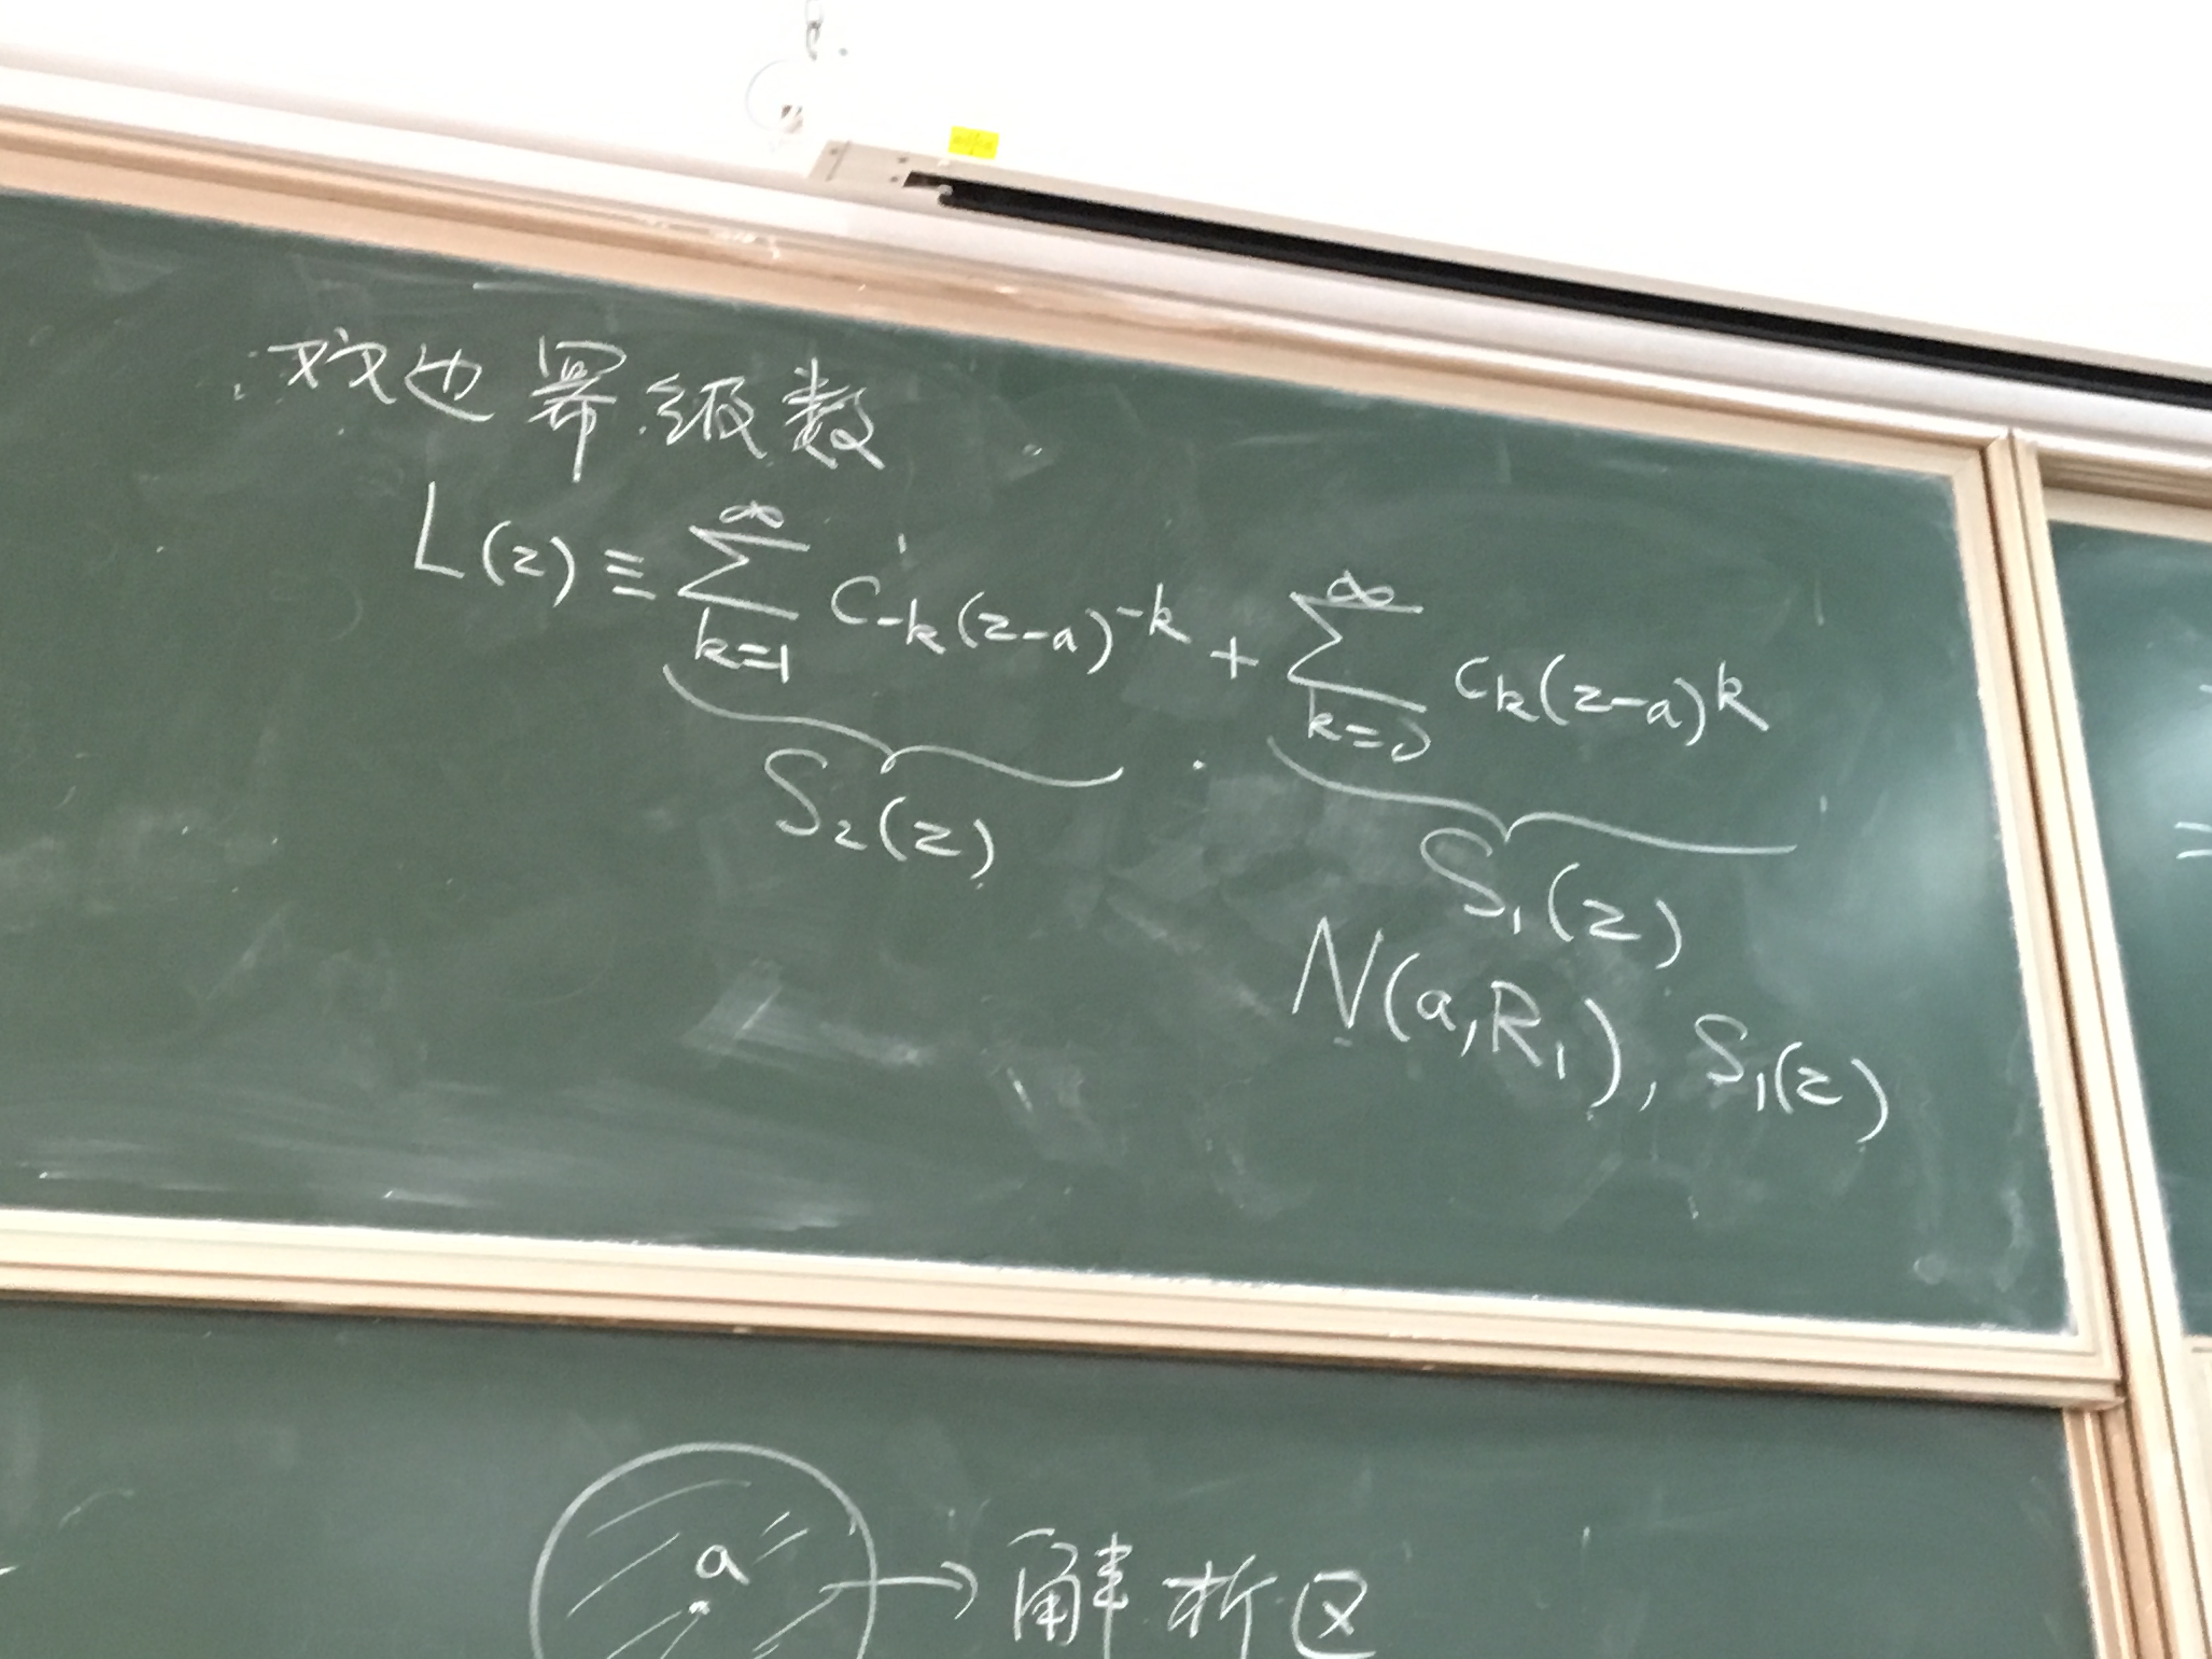 双边幂级数
L(z) ≡ ∑_{k=1}^{∞} C_{-k}(z-a)^{-k} + ∑_{k=0}^{∞} C_k(z-a)^k
S₂(z) S₁(z)
N(a,R₁), S₁(z)
a → 解析区